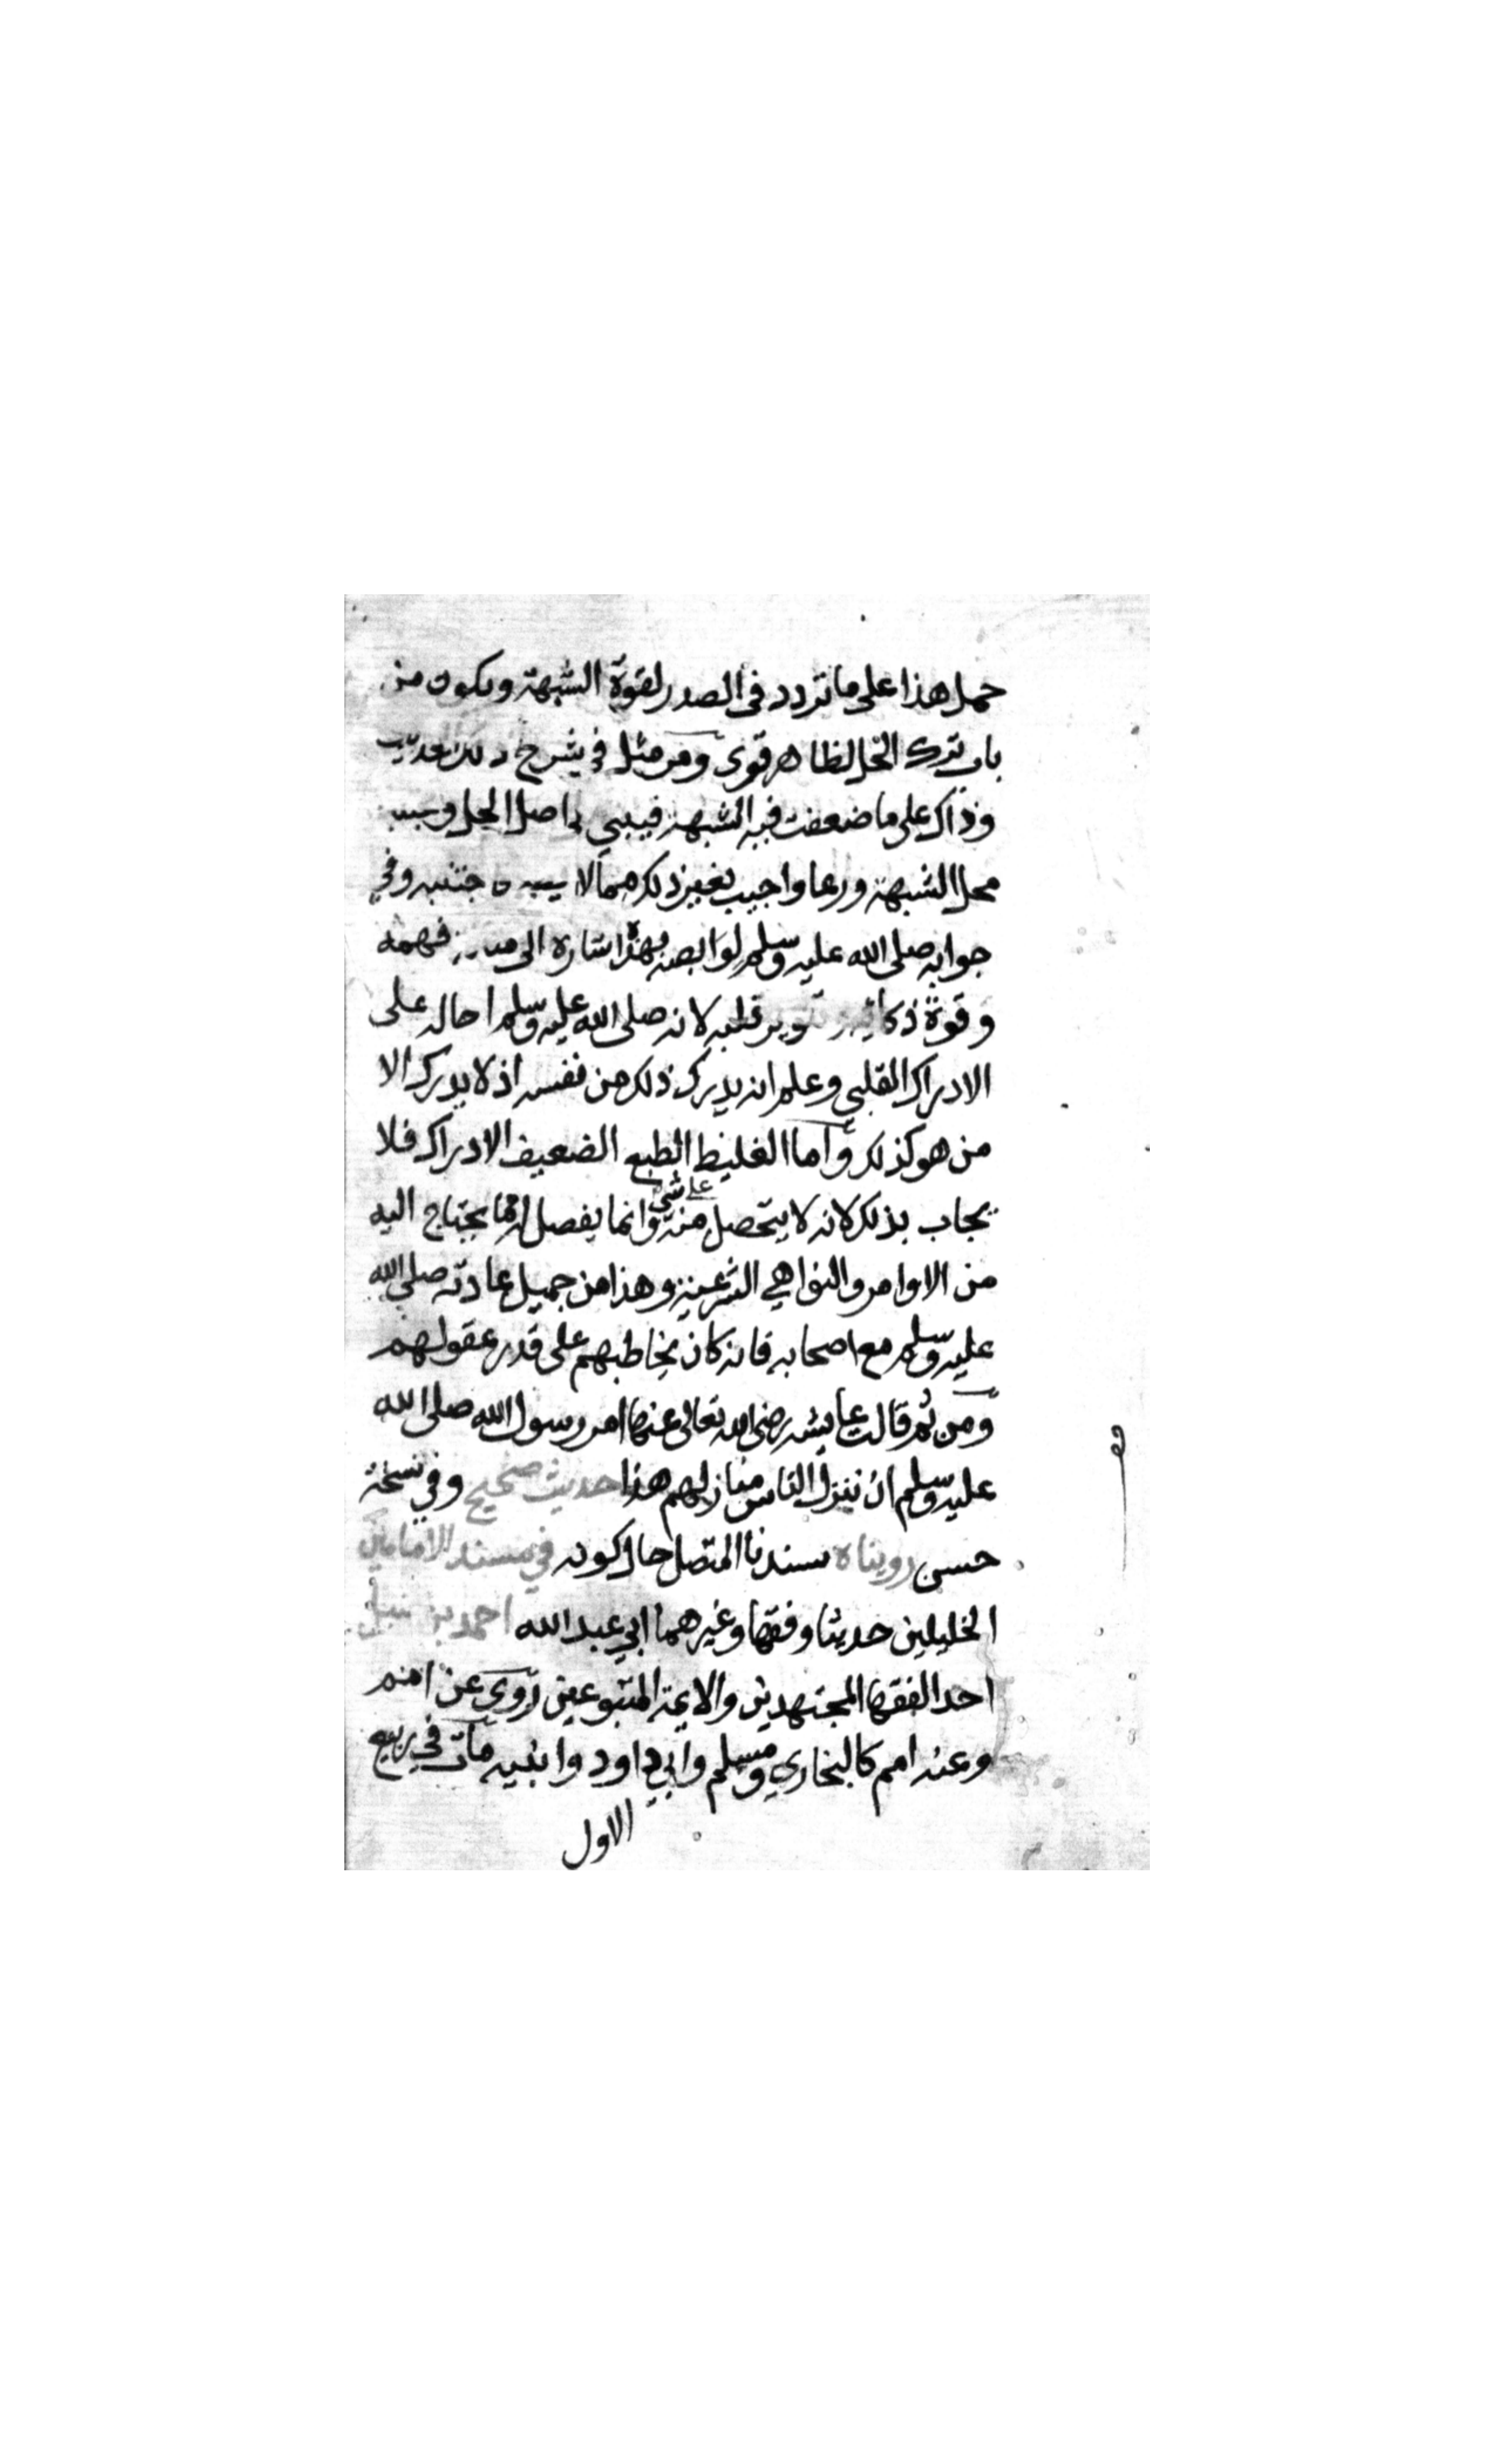 حمل هذا على ما تردد في الصدر لقوة الشبهة ويكون من
باب ترك الحل لظاهر قوي ومن مثل في شرح
وذاك على ما ضعفت فيه الشبهة فيبني اصل الحل
محل الشبهة ورعا واجيب بغير ذلك مما لا وفي
جوابه صلى الله عليه وسلم لوابصة بهذا اشارة الى فهمه
وقوة وتنوير قلبه لانه صلى الله عليه وسلم احاله على
الادراك القلبي وعلم انه يدرك ذلك من نفسه اذ لا يدرك الا
من هو كذلك واما الغليظ الطبع الضعيف الادراك فلا
يجاب بذلك لانه لا يتحصل منه على شي وانما يفصل له ما يحتاج اليه
من الاوامر والنواهي الشرعية وهذا من جميل عادته صلى الله
عليه وسلم مع اصحابه فانه كان يخاطبهم على قدر عقولهم
ومن ثم قالت عايشه رضي الله تعالى عنها امر رسول الله صلى الله
عليه وسلم ان ننزل الناس منازلهم هذا حديث صحيح وفي نسخة
حسن رويناه بسندنا المتصل حال كونه في مسند الامامين
الجليلين حديثا وفقها وغيرهما ابي عبد الله احمد بن حنبل
احد الفقها المجتهدين والايمة المتبوعين روى عن امم
وعنه امم كالبخاري ومسلم وابي داود وابنيه مات في ربيع
الاول